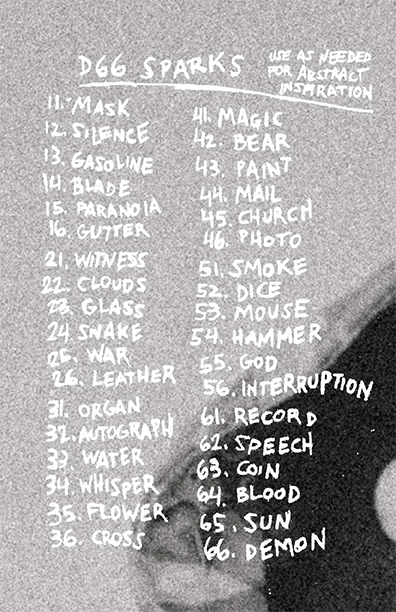 D66 SPARKS
USE AS NEEDED
FOR ABSTRACT
INSPIRATION
11. MASK
12. SILENCE
13. GASOLINE
14. BLADE
15. PARANOIA
16. GUTTER
21. WITNESS
22. CLOUDS
23. GLASS
24. SNAKE
25. WAR
26. LEATHER
31. ORGAN
32. AUTOGRAPH
33. WATER
34. WHISPER
35. FLOWER
36. CROSS
41. MAGIC
42. BEAR
43. PAINT
44. MAIL
45. CHURCH
46. PHOTO
51. SMOKE
52. DICE
53. MOUSE
54. HAMMER
55. GOD
56. INTERRUPTION
61. RECORD
62. SPEECH
63. COIN
64. BLOOD
65. SUN
66. DEMON